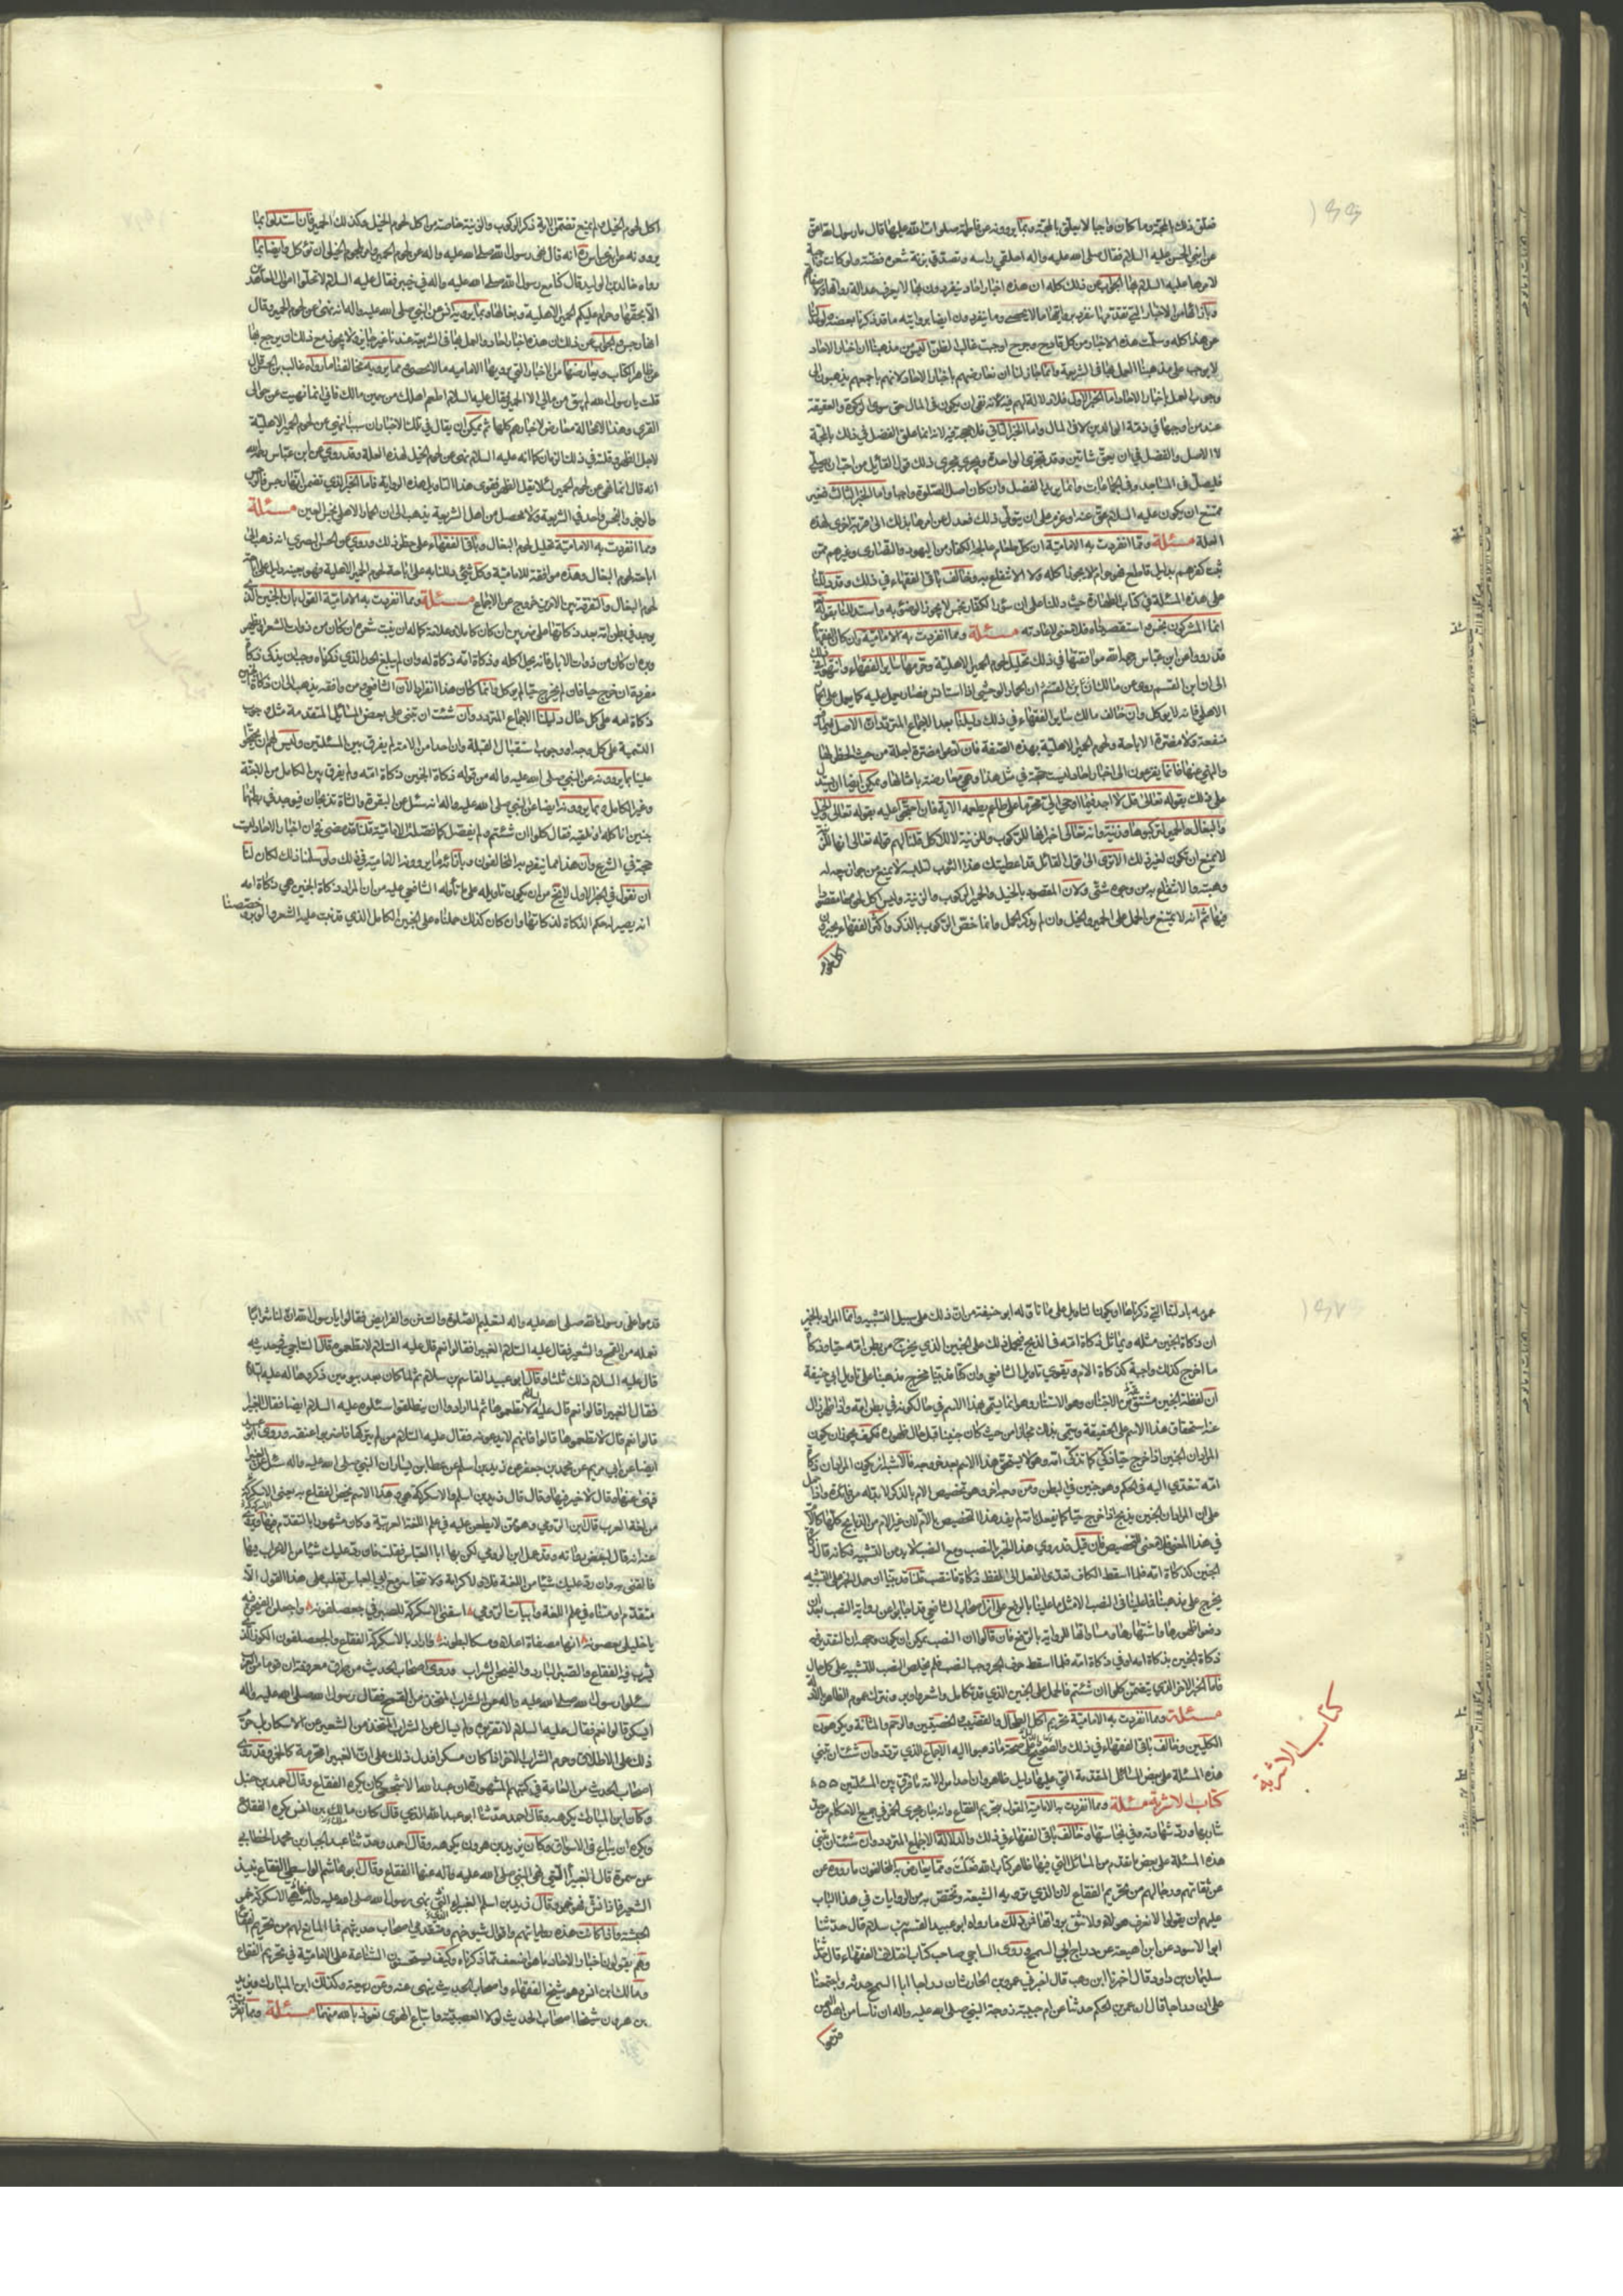 فعلق ذلك بالمحبة وما كان واجبا لا يعلق بالمحبة وبما يروونه عن فاطمة صلوات الله عليها قال يا رسول الله اعق
عن ابني الحسن عليه السلام فقال صلى الله عليه واله احلقي راسه وتصدقي بزنة شعره فضة ولو كانت واجبة
لامرها عليه السلام بها الجواب عن ذلك كله ان هذه اخبار احاد ينفردون بها لا يعرف عدالة رواتها ولا
وبازائها من الاخبار التي تقدمت ما ينفرد بروايتها ما لا يحصى ومما ينفردون ايضا بروايته ما قد ذكرنا بعضه ولو عدلنا
عن هذا كله وسلمت هذه الاخبار من كل قدح وجرح اوجبت غالب الظن اليس من مذهبنا ان اخبار الاحاد
لا يوجب على مذهبنا العمل بها في الشريعة وانما جاز لنا ان نعارضهم باخبار الاحاد لانهم باجمعهم يذهبون الى
وجوب العمل باخبار الاحاد اما الخبر الاول فلا دلالة لهم فيه لانه نفى ان يكون في المال حق سوى الزكوة والعقيقة
عند من اوجبها في ذمة الوالدين لا في المال واما الخبر الثاني فلا حجة فيه لانه انما علق الفضل في ذلك بالمحبة
لا الاصل والفضل في ان يعق شاتين وقد تجزى الواحدة ويجري مجرى ذلك قول القائل من احب ان يصلي
فليصل في المساجد وفي الجماعات وانما يريد الفضل وان كان اصل الصلوة واجبا واما الخبر الثالث فغير
ممتنع ان يكون عليه السلام عق عنه او عزم على ان يتولى ذلك فعدل عن امرها بذلك الى قربة اخرى لهذه
العلة مسئلة ومما انفردت به الامامية ان كل طعام عالجه الكفار من اليهود والنصارى وغيرهم ممن
ثبت كفرهم بدليل قاطع فهو حرام لا يجوز اكله ولا الانتفاع به وخالف باقي الفقهاء في ذلك وقد دللنا
على هذه المسئلة في كتاب الطهارة حيث دللنا على ان سؤر الكفار نجس لا يجوز الوضوء به واستدللنا بقوله
انما المشركون نجس استقصيناه فلا معنى لاعادته مسئلة ومما انفردت به الامامية وان كان الفقهاء
قد رووا عن ابن عباس رحمه الله موافقتها في ذلك تحليل لحوم الحمير الاهلية وحرمها سائر الفقهاء وانتهوا في ذلك
الى ان ابن القسم روى عن مالك ان الحمار الوحشي اذا استانس فصار يحمل عليه كما يحمل على
الاهلي فانه لا يوكل وان خالف مالك سائر الفقهاء في ذلك دليلنا بعد الاجماع المتردد ان الاصل فيما فيه
منفعة ولا مضرة الاباحة ولحوم الحمير الاهلية بهذه الصفة فان ادعوا مضرة اجلة من حيث الحظر لها
والنهي عنها فانما يفزعون الى اخبار احاد وليست حجة في مثل هذا وهي معارضة بامثالها ويمكن ايضا ان يستدل
على ذلك بقوله تعالى قل لا اجد فيما اوحي الي محرما على طاعم يطعمه الاية فان احتجوا عليه بقوله تعالى والخيل
والبغال والحمير لتركبوها وزينة وانه تعالى اخبر انها للركوب والزينة لا للاكل قلنا لهم قوله تعالى انها للركوب
لا يمنع ان تكون لغير ذلك الا ترى الى قول القائل قد اعطيتك هذا الثوب لتلبسه لا يمنع من جواز بيعه له
وهبته والانتفاع به من وجوه شتى ولان المقصود بالخيل والحمير الركوب والزينة وليس اكل لحومها مقصودا
فيها ثم انه لا يمتنع من الحمل على الحمير والخيل وان لم يذكر الحمل وانما خص الركوب بالذكر واكثر الفقهاء يجيزون
اكل لحوم
اكل لحوم الخيل ولم يمنع تضمن الاية ذكر الركوب والزينة خاصة من اكل لحوم الخيل وكذلك الحمير فان استدلوا بما
يروونه عن انه قال نهى رسول الله صلى الله عليه واله عن لحوم الحمير وامر بلحوم الخيل ان توكل وايضا بما
رواه خالد بن الوليد قال كنا مع رسول الله صلى الله عليه واله في خيبر فقال عليه السلام لا تحل اموال المعاهدين
الا بحقها وحرام عليكم الحمير الاهلية وبغالها وبما يرويه انس عن النبي صلى الله عليه واله انه نهى عن لحوم الحمير وقال
انها رجس والجواب عن ذلك ان هذه اخبار احاد والعمل بها في الشريعة عندنا غير جايز ولا يجوز مع ذلك ان يرجع بها
عن ظاهر الكتاب ويعارضها من الاخبار التي يرويها الامامية ما لا يحصى مما يرويه مخالفنا ما رواه غالب بن الحر قال
قلت يا رسول الله لم يبق من مالي الا الحمير فقال عليه السلام اطعم اهلك من سمين مالك فاني انما نهيت عن حوالى
القرى وهذا لا محالة معارض لاخبارهم كلها ثم يمكن ان يقال في تلك الاخبار ان سبب النهي عن لحوم الحمير الاهلية
لاجل الظهر وقلته في ذلك الزمان كما انه عليه السلام نهى عن لحوم الخيل لهذه العلة وقد روي عن ابن عباس رحمه الله
انه قال انما نهى عن لحوم الحمير لئلا يقل الظهر فقوى هذا التاويل بهذه الرواية فاما الخبر الذي تضمن انها رجس فالرجس
والرجز والنجس واحد في الشريعة ولا محصل من اهل الشريعة يذهب الى ان الحمار الاهلي نجس العين مسئلة
ومما انفردت به الامامية تحليل لحوم البغال وباقي الفقهاء على حظر ذلك وروي عن الحسن البصري انه ذهب الى
اباحة لحوم البغال وهذه موافقة للامامية وكل شئ دللنا به على اباحة لحوم الحمير الاهلية فهو بعينه دليل على اباحة
لحوم البغال والتفرقة بين الامرين خروج عن الاجماع مسئلة ومما انفردت به الامامية القول بان الجنين الذي
يوجد في بطن امه بعد ذكاتها على ضربين ان كان كاملا وعلامة كماله ان ينبت شعره ان كان من ذوات الشعر او يظهر
وبره ان كان من ذوات الاوبار فانه يحل اكله وذكاة امه ذكاة له وان لم يبلغ الحد الذي ذكرناه وجب ان يذكى ذكاة
مفردة ان خرج حيا فان لم يخرج حيا لم يوكل وانما كان هذا انفرادا لان الشافعي ومن وافقه يذهب الى ان ذكاة الجنين
ذكاة امه على كل حال دليلنا الاجماع المتردد وان شئت ان تبنى على بعض المسائل المتقدمة مثل وجوب
التسمية على كل وجه او وجوب استقبال القبلة وان احدا من الامة لم يفرق بين المسئلتين وليس لهم ان يحتجوا
علينا بما يروونه عن النبي صلى الله عليه واله من قوله ذكاة الجنين ذكاة امه ولم يفرق بين الكامل من الاجنة
وغير الكامل وبما يروونه ايضا عن النبي صلى الله عليه واله انه سئل عن البقرة والشاة تذبحان فيوجد في بطنها
جنين اناكله او نلقيه فقال كلوا ان شئتم ولم يفصل كما فصلت الامامية قلنا قد مضى ان اخبار الاحاد ليست
حجة في الشرع وان هذا مما ينفرد به المخالفون وبازائه ما يرويونه الامامية في ذلك ولو سلمنا ذلك لكان لنا
ان نقول في الخبر الاول لا يخ من ان يكون تاويله على ما تأوله الشافعي عليه من ان المراد ذكاة الجنين هي ذكاة امه
انه يصير له حكم الذكاة لذكاتها وان كان كذلك حملناه على الجنين الكامل الذي قد نبت عليه الشعر والوبر وخصصنا
عمومه بادلتنا التي ذكرناها او يكون التاويل على ما تاوله ابو حنيفة من ان ذلك على سبيل التشبيه وانما المراد بالخبر
ان ذكاة الجنين مثله ويماثل ذكاة امه في الذبح فيحمل ذلك على الجنين الذي يخرج من بطن امه حيا وذكاة
ما اخرج كذلك واجبة كذكاة الام ويقوي تاويل الشافعي وان كنا قد بينا مخرج مذهبنا على تاويل ابي حنيفة
ان لفظة الجنين مشتقة من الاجتنان وهو الاستتار وهو انما يسمى بهذا الاسم في حال كونه في بطن امه واذا ظهر زال
عنه استحقاق هذا الاسم على الحقيقة ويسمى بذلك مجازا من حيث كان جنينا قبل حال ظهوره فكيف يجوز ان يكون
المراد ان الجنين اذا خرج حيا ذكي كما تذكى امه وهو لا يستحق هذا الاسم بعد خروجه فالاشبه ان يكون المراد ان ذكاة
امه تتعدى اليه في الحكم وهو جنين في البطن ومن وجه اخر وهو تخصيص الام بالذكر لا بد له من فائدة واذا حمل
على ان المراد ان الجنين يذبح اذا خرج حيا كما يفعل بامه لم يفد هذا التخصيص بالام لان غير الام من الذبايح كلها كالام
في هذا المعنى فلا معنى للتخصيص فان قيل قد روي هذا الخبر بالنصب ومع النصب لا بد من التشبيه فكانه قال ذكاة
الجنين كذكاة امه فلما اسقط الكاف تعدى الفعل الى لفظ ذكاة فانتصب قلنا قد بينا ان حمل الخبر على التشبيه
يخرج على مذهبنا فما علينا في النصب الا مثل ما علينا بالرفع على ان اصحاب الشافعي قد اجابوا عن رواية النصب بعد ان
دفعوا ظهورها واشتهارها ومساواتها للرواية بالرفع فان قالوا ان النصب يمكن ان يكون وجهه ان التقدير في
ذكاة الجنين بذكاة امه او في ذكاة امه فلما اسقط حرف الجر وجب النصب فلم يخلص النصب للتشبيه على كل حال
فاما الخبر الاخر الذي يتضمن كلوا ان شئتم فالحمل على الجنين الذي قد تكامل واشعر او اوبر ونترك عموم الظاهر للادلة
مسئلة ومما انفردت به الامامية تحريم اكل الطحال والقضيب والخصيتين والرحم والمثانة ويكرهون
الكليتين وخالف باقي الفقهاء في ذلك والذي يدل على صحة ما ذهبوا اليه الاجماع الذي تردد وان شئت ان تبني
هذه المسئلة على بعض المسائل المتقدمة التي عليها دليل ظاهر وان احدا من الامة ما فرق بين المسئلتين
كتاب الاشربة مسئلة ومما انفردت به الامامية القول بتحريم الفقاع وانه جار مجرى الخمر في جميع الاحكام من حد
شاربها ورد شهادته وفي نجاستها وخالف باقي الفقهاء في ذلك والدلالة الاجماع المتردد وان شئت ان تبنى
هذه المسئلة على بعض ما تقدم من المسائل التي فيها ظاهر كتاب الله فعلت ومما يعارض به المخالفون ما رووه عن
عن ثقاتهم ورجالهم من تحريم الفقاع لان الذي ترويه الشيعة وتختص به من الروايات في هذا الباب
عليهم ان يقولوا لا نعرف هولاء ولا نثق برواتها فمن ذلك ما رواه ابو عبيد القسم بن سلام قال حدثنا
ابو الاسود عن ابن لهيعة عن دراج ابي السمح وروى الساجي صاحب كتاب اختلاف الفقهاء قال حدثنا
سليمان بن داود قال اخبرنا ابن وهب قال اخبرني عمرو بن الحارث ان دراجا ابا السمح حدثه واجتمعا
على ان دراجا قال ان عمر بن الحكم حدثنا عن ام حبيبة زوجة النبي صلى الله عليه واله ان ناسا من اهل اليمن
قدموا
كتاب الاشربة
قدموا على رسول الله صلى الله عليه واله لتعليم الصلوة والسنن والفرايض فقالوا يا رسول الله ان لنا شرابا
نعمله من القمح والشعير فقال عليه السلام الغبيرا فقالوا نعم قال عليه السلام لا تطعموه قال الساجي في حديثه
قال عليه السلام ذلك ثلثا وقال ابو عبيد القاسم بن سلام ثم لما كان بعد يومين ذكروها له عليه السلام
فقال الغبيرا قالوا نعم قال عليه السلام لا تطعموها ثم لما ارادوا ان ينطلقوا سئلوه عليه السلام ايضا فقال الغبيرا
قالوا نعم قال لا تطعموها قالوا فانهم لا يدعونه فقال عليه السلام من لم يتركها فاضربوا عنقه وروى ابو عبيد
ايضا عن ابي مريم عن محمد بن جعفر عن زيد بن اسلم عن عطا بن يسار ان النبي صلى الله عليه واله سئل عن الغبيرا
فنهى عنها وقال لا خير فيها وقال قال زيد بن اسلم والاسكركة هي وهذا الاسم يختص الفقاع به يعنى الاسكركة
من لغة العرب قال ابن الرومي وهو ممن لا يطعن عليه في علم اللغة العربية وكان مشهودا بالتقدم فيها
عنه انه قال لبعض وقد عمل ابن الرومي لكن بها ابا العباس فقلت فان رد عليك شيئا من الاعراب فيها
فالقني به وان رد عليك شيئا من اللغة فلا ولا كرامة ولا تجاسر مع ابي العباس ثعلب على هذا القول الا
متقدم او متناه في علم اللغة وابيات الرومي اسقني الاسكركة الصنبر في جعصلفونه واجعلن الفيجن فيه
يا خليلي بغصونه انها مصفاة اعلاه ومسك لبطونه فاراد بالاسكركة الفقاع والجعصلفون الكوز الذي
يشرب فيه الفقاع والصنبر البارد والفيجن السذاب وروى اصحاب الحديث من طرق معروفة ان قوما من العرب
سئلوا رسول الله صلى الله عليه واله عن الشراب المتخذ من القمح فقال رسول الله صلى الله عليه واله
ايسكر قالوا نعم فقال عليه السلام لا تقربوه ولم يسال عن الشراب المتخذ من الشعير عن الاسكار بل حرم
ذلك على الاطلاق وحرم الشراب الاخر اذا كان مسكرا فدل ذلك على ان الغبيرا محرمة كالخمر وقد روى
اصحاب الحديث من العامة في كتبهم المشهورة ان عبد الله الاشجعي كان يكره الفقاع وقال احمد بن حنبل
وكان ابن المبارك يكرهه وقال احمد حدثنا ابو عبد الله قال كان مالك بن انس يكره الفقاع
ويكره ان يباع في الاسواق وكان يزيد بن هرون يكرهه وقال احمد وحدثنا عبد الجبار بن محمد الخطابي
عن سمرة قال الغبيرا التي نهى النبي صلى الله عليه واله عنها الفقاع وقال ابو هاشم الواسطي الفقاع نبيذ
الشعير فاذا نش فهو خمر وقال زيد بن اسلم الغبيراء التي نهى رسول الله صلى الله عليه واله عنها هي الاسكركة خمر
الحبشة واذا كانت هذه رواياتهم واقوال شيوخهم ومتقدمي اصحاب حديثهم فما المانع لهم من تحريم الفقاع
وهم يقبلون اخبار الاحاد ما هو اضعف مما ذكرناه وكيف يستحسنون الشناعة على الامامية في تحريم الفقاع
ومالك بن انس وهو شيخ الفقهاء واصحاب الحديث ينهى عنه وعن بيعه وكذلك ابن المبارك ويزيد
بن هرون شيخا اصحاب الحديث لولا العصبية واتباع الهوى نعوذ بالله منهما مسئلة ومما انفردت